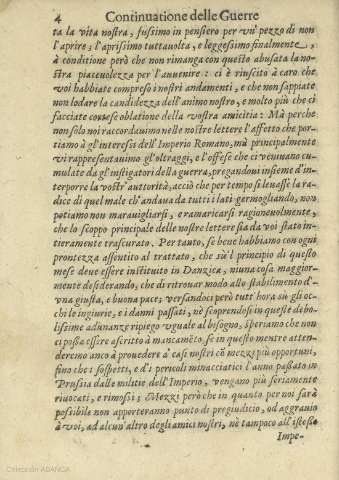 4 Continuatione delle Guerre
ta la vita nostra, fussimo in pensiero per vn' pezzo di non
l'aprire; l'aprissimo tuttauolta, e leggessimo finalmente,
à conditione però che non rimanga con questo abusata la no-
stra piaceuolezza per l'auuenire: ci è riuscito à caro che
voi habbiate compreso i nostri andamenti, e che non sappiate
non lodare la candidezza dell'animo nostro, e molto più che ci
facciate cortese oblatione della vostra amicitia: Mà perche
non solo noi raccordauimo nelle nostre lettere l'affetto che por-
tiamo à gl'interessi dell'Imperio Romano, mà principalmente
vi rappresentauimo gl'oltraggi, e l'offese che ci veniuano cu-
mulate da gl'instigatori della guerra, pregandoui insieme d'in-
terporre la vostr' autorità, acciò che per tempo si leuasse la ra-
dice di quel male ch'andaua da tutti i lati germogliando, non
potiamo non marauigliarsi, e ramaricarsi ragioneuolmente,
che lo scoppo principale delle nostre lettere sia da voi stato in-
tieramente trascurato. Per tanto, se bene habbiamo con ogni
prontezza assentito al trattato, che sù'l principio di questo
mese deue essere instituto in Danzica, niuna cosa maggior-
mente desiderando, che di ritrouar modo allo stabilimento d'
vna giusta, e buona pace; versandoci però tutt' hora in gl'oc-
chi le ingiurie, e i danni passati, nè scoprendosi in queste debo-
lissime adunanze ripiego vguale al bisogno, speriamo che non
ci possa essere ascritto à mancamẽto, se in questo mentre atten-
deremo anco à prouedere à casi nostri cõ mezzi più opportuni,
fino che i sospetti, e d' i pericoli minacciarici l'anno passato in
Prussia dalle militie dell'Imperio, vengano più seriamente
riuocati, e rimossi; Mezzi però che in quanto per noi sarà
possibile non apporteranno punto di pregiudicio, od aggrauio
à voi, ad alcun'altro degl'amici nostri, nè tampoco all'istesso
Impe-
Colección ABANCA